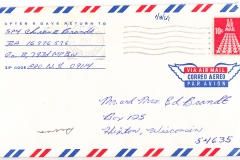 AFTER 5 DAYS RETURN TO
SP4 Chris E Brandt
RA 16976576
ZIP CODE APO N.Y. 09114
10c
U.S. AIR MAIL
VIA AIR MAIL
CORREO AEREO
PAR AVION
Mr and Mrs Ed Brandt
Box 125
Hixton, Wisconsin
54635